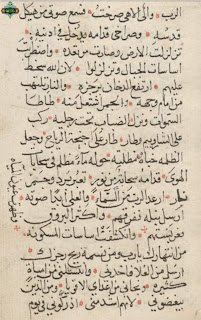 الرب والى الاهى صرخت فسمع صوتى من هيكل
قدسه وصراخى قدامه يدخل فى ادنيه
تزلزلت الارض وصارت مرتعده واضطربت
اساسات الجبال وتزلزلوا لان الله سخط
عليهم ارتفع الدخان برجزه والنار تلتهب
من امام وجهه والجمر اشتعل منه طاطا
السموات ونزل الضباب تحت رجليه ركب
على الشاروبيم وطار طار على اجنحة الرياح وجعل
الظلمه خباه مظلته حوله ما مظلم فى سحاب
الهوى قدامه سحابه من نور بغير برد وجمر
نار ارعد الرب من السما والعلى ابدا صوته
ارسل نبله ففرقهم واكثر البروق
وانكشفت اساسات المسكونه
من انتهارك يارب ومن نسمة ريح رجزك
ارسل من العلا فاخذنى وانتشلنى من مياه
كثيره ونجانى من اعداى الاقويا ومن الذين
يبغضونى لانهم ادركونى فى يوم